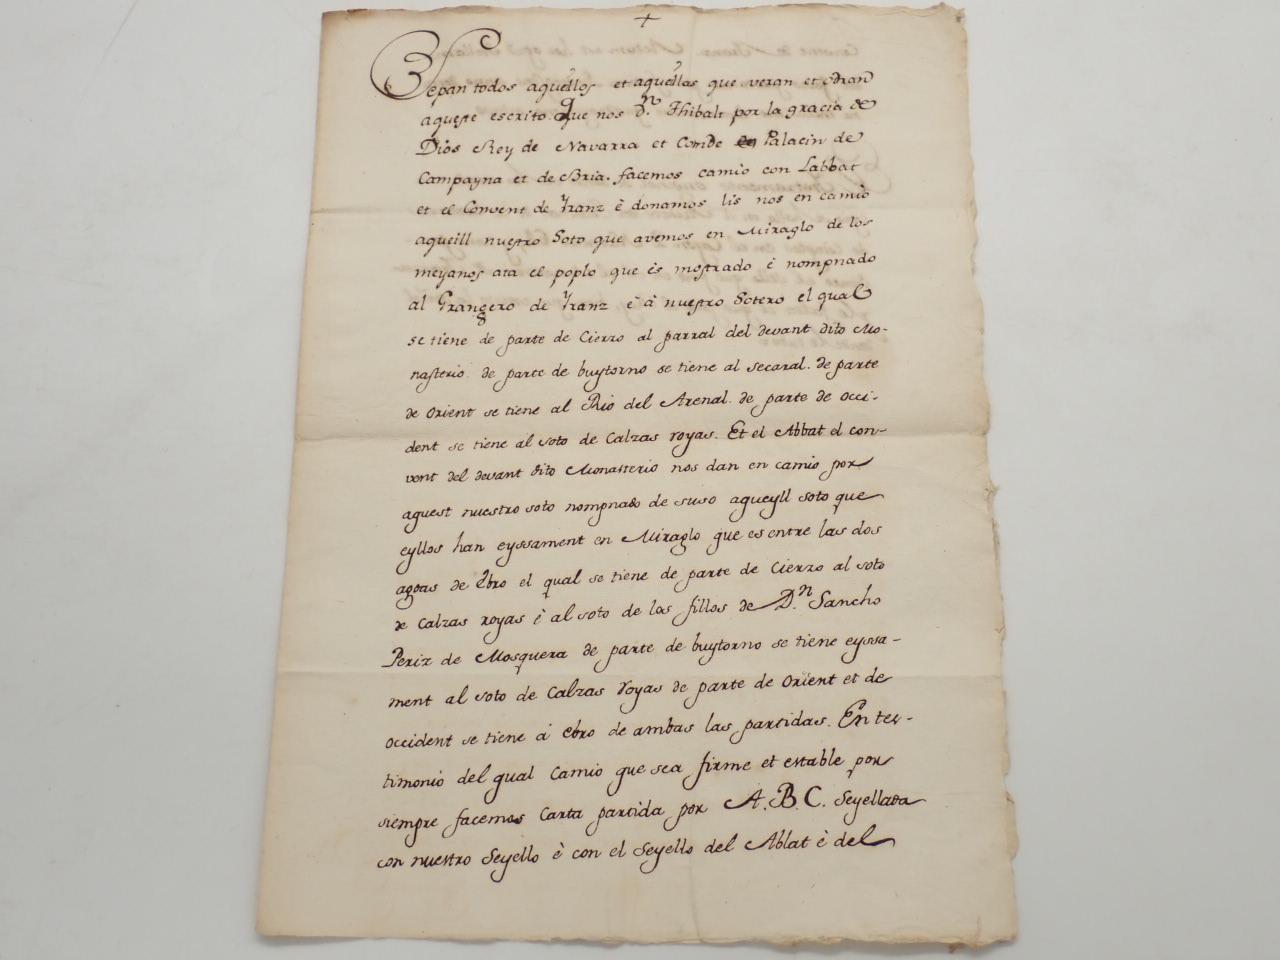 +
Sepan todos aquellos et aquellas que veran et odran
aqueste escrito. Que nos Dn. Thibalt por la gracia de
Dios Rey de Navarra et Comde Palacin de
Campayna et de Bria. facemos camio con Labbat
et el Convent de Iranz è donamos lis nos en camio
aqueill nuestro Soto que avemos en Miraglo de los
meyanos ata el poplo que es mostrado è nompnado
al Grangero de Iranz è à nuestro Sotero el qual
se tiene de parte de Cierzo al parral del devant dito Mo-
nasterio. de parte de buytorno se tiene al secaral. de parte
de orient se tiene al Rio del Arenal. de parte de occi-
dent se tiene al soto de Calzas royas. Et el Abbat el con-
vent del devant dito Monasterio nos dan en camio por
aquest nuestro soto nompnado de suso aqueyll soto que
eyllos han eyssament en Miraglo que es entre las dos
agoas de ebro el qual se tiene de parte de Cierzo al soto
de Calzas royas è al soto de los fillos de Dn. Sancho
Periz de Mosquera de parte de buytorno se tiene eyssa-
ment al soto de Calzas royas de parte de orient et de
occident se tiene à ebro de ambas las partidas. En tes-
timonio del qual Camio que sea firme et estable por
siempre facemos Carta partida por A.B.C. Seyellada
con nuestro Seyello è con el Seyello del Abbat è del